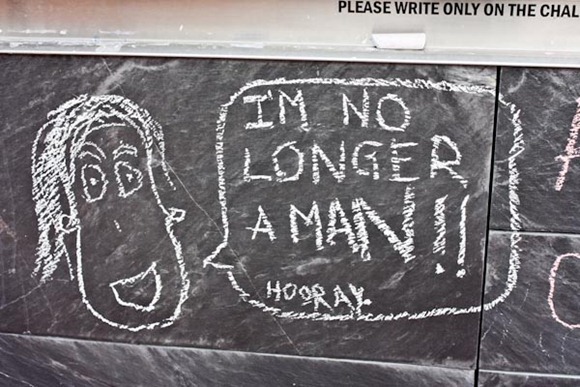 PLEASE WRITE ONLY ON THE CHAL
I'M NO
LONGER
A MAN!!
HOORAY.